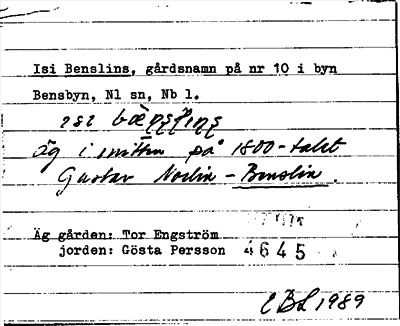 Isi Benslins, gårdsnamn på nr 10 i byn
Bensbyn, Nl sn, Nb l.
ɪsɪ
äg i mitten på 1800-talet
Gustav Nodin - Benslin.
Äg gården: Tor Engström
jorden: Gösta Persson 4645
EBL 1989